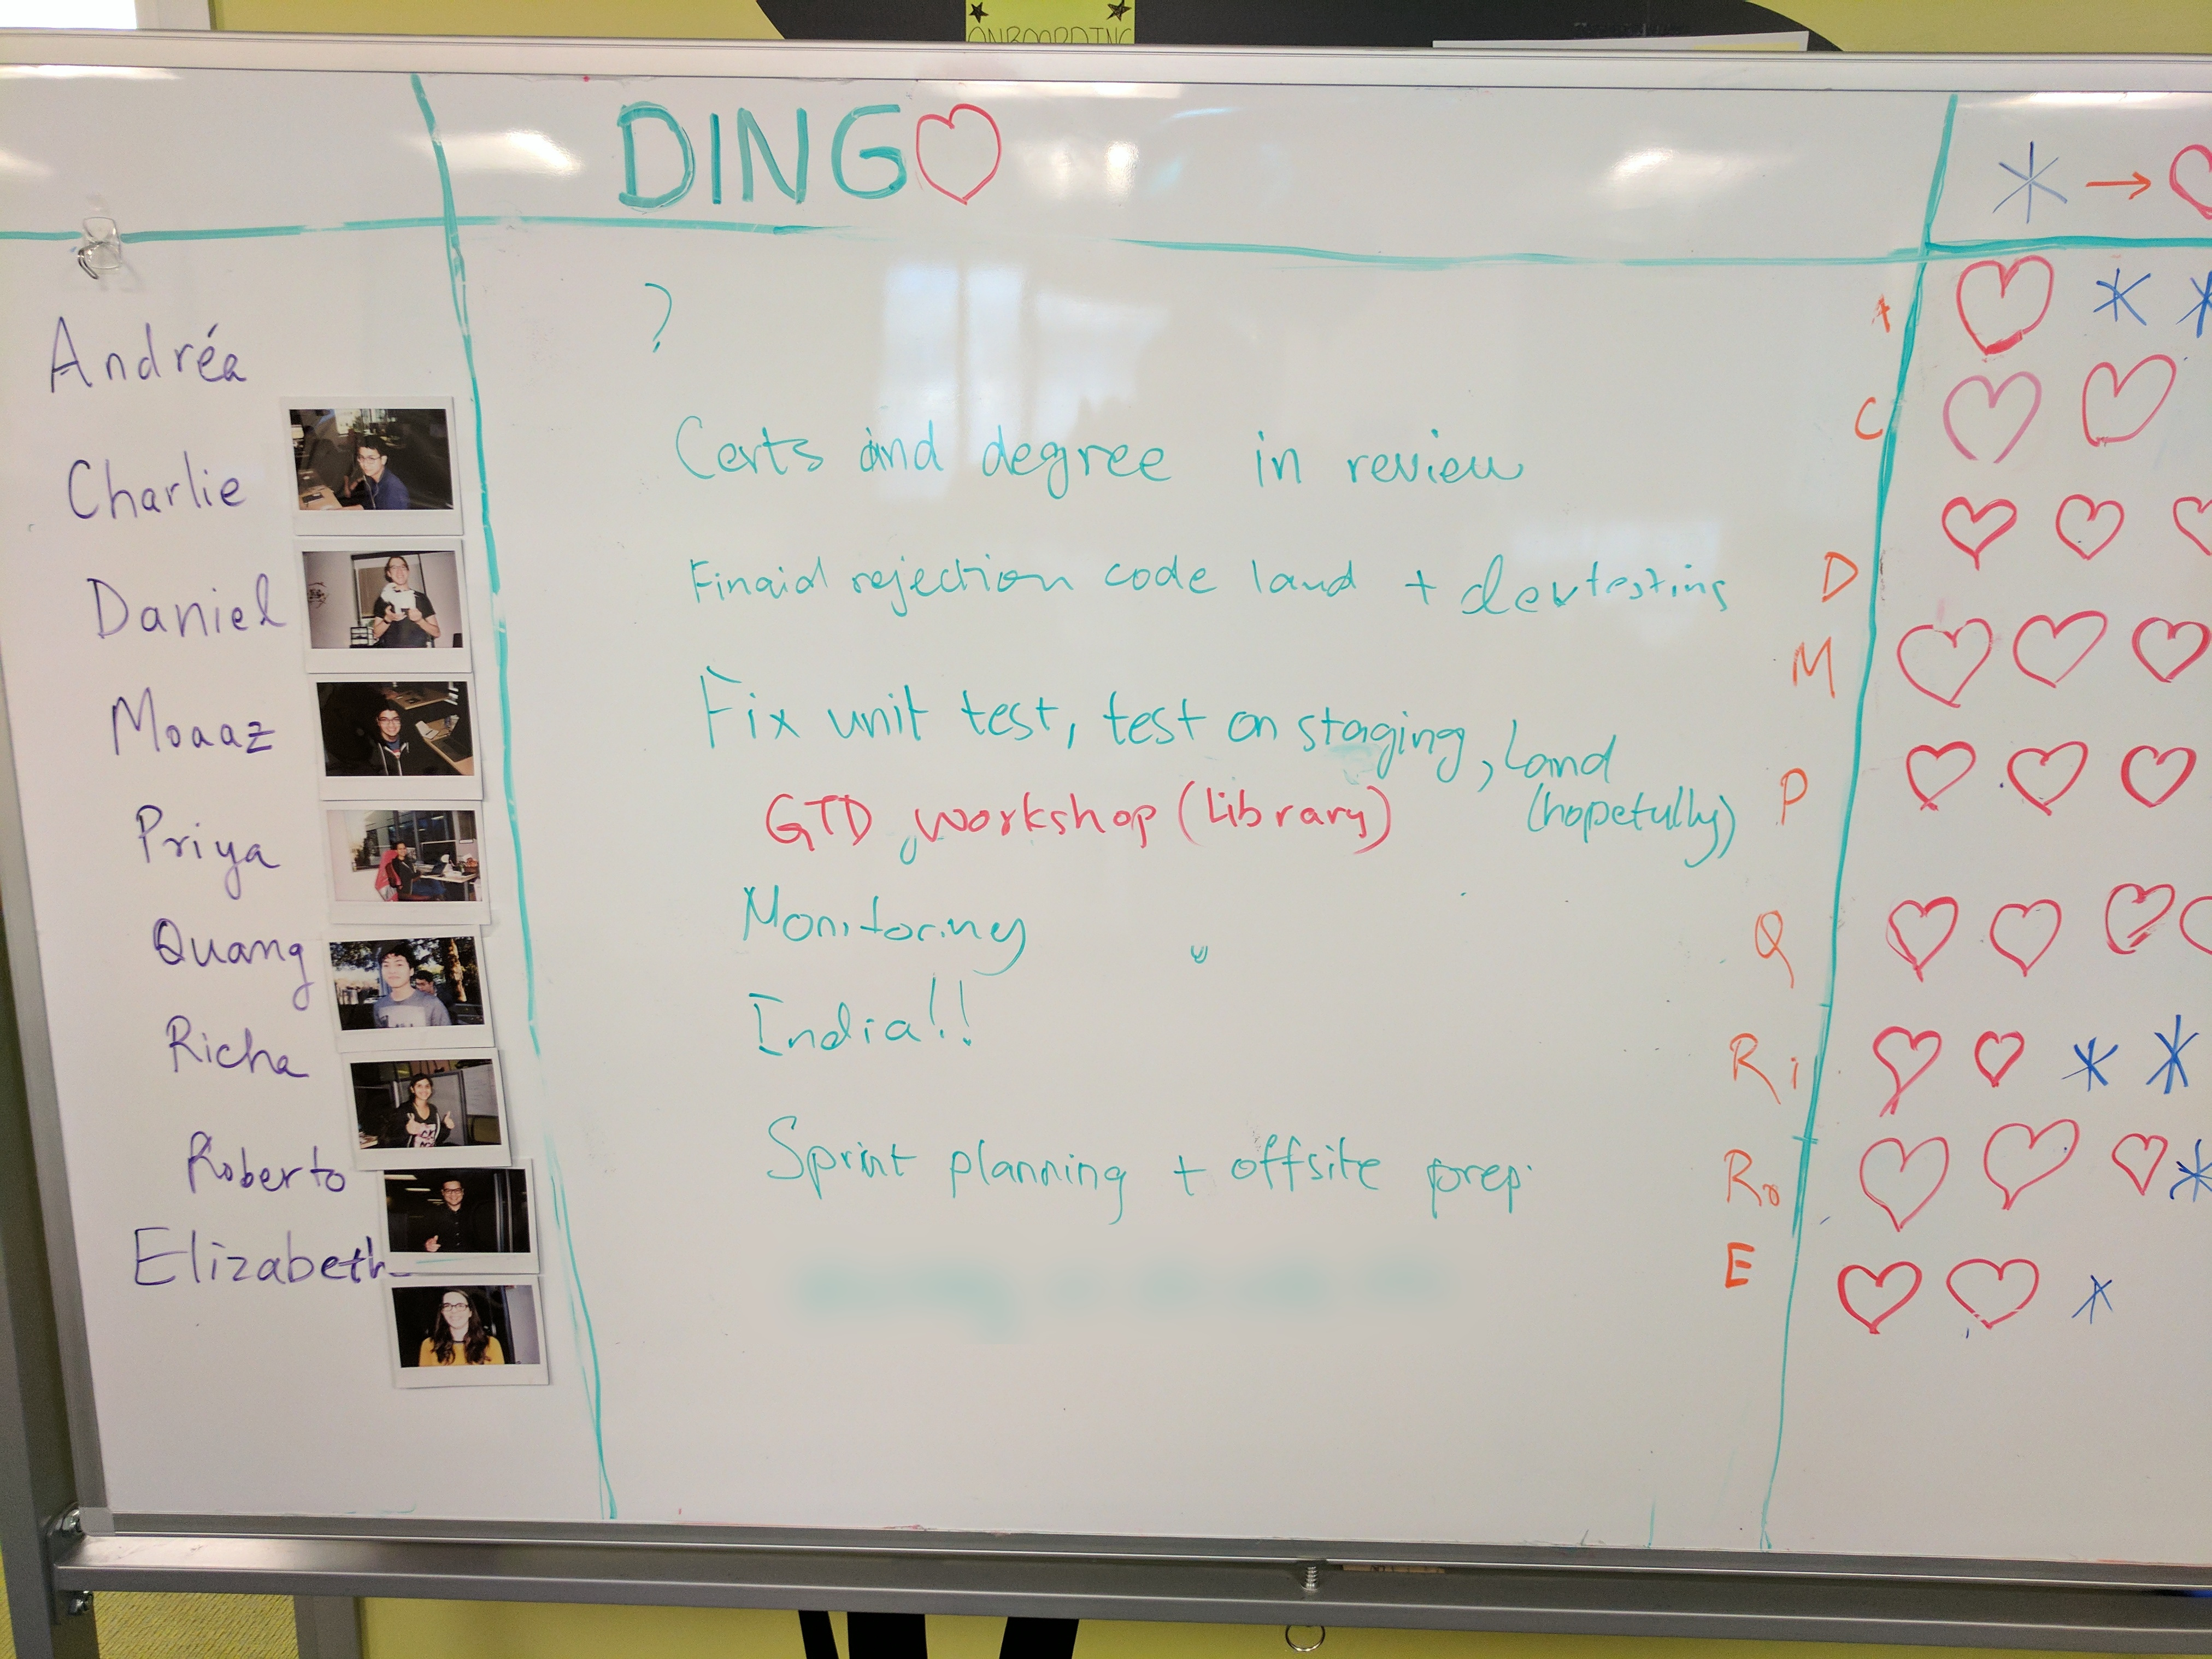 ONBOARDING
DINGO
Andréa
?
A
Charlie
Certs and degree in review
C
Daniel
Finaid rejection code land + devtesting
D
Moaaz
Fix unit test, test on staging, land
(hopefully)
M
Priya
GTD workshop (library)
P
Quang
Monitoring
Q
Richa
India!!
Ri
Roberto
Sprint planning + offsite prep.
Ro
Elizabeth
E